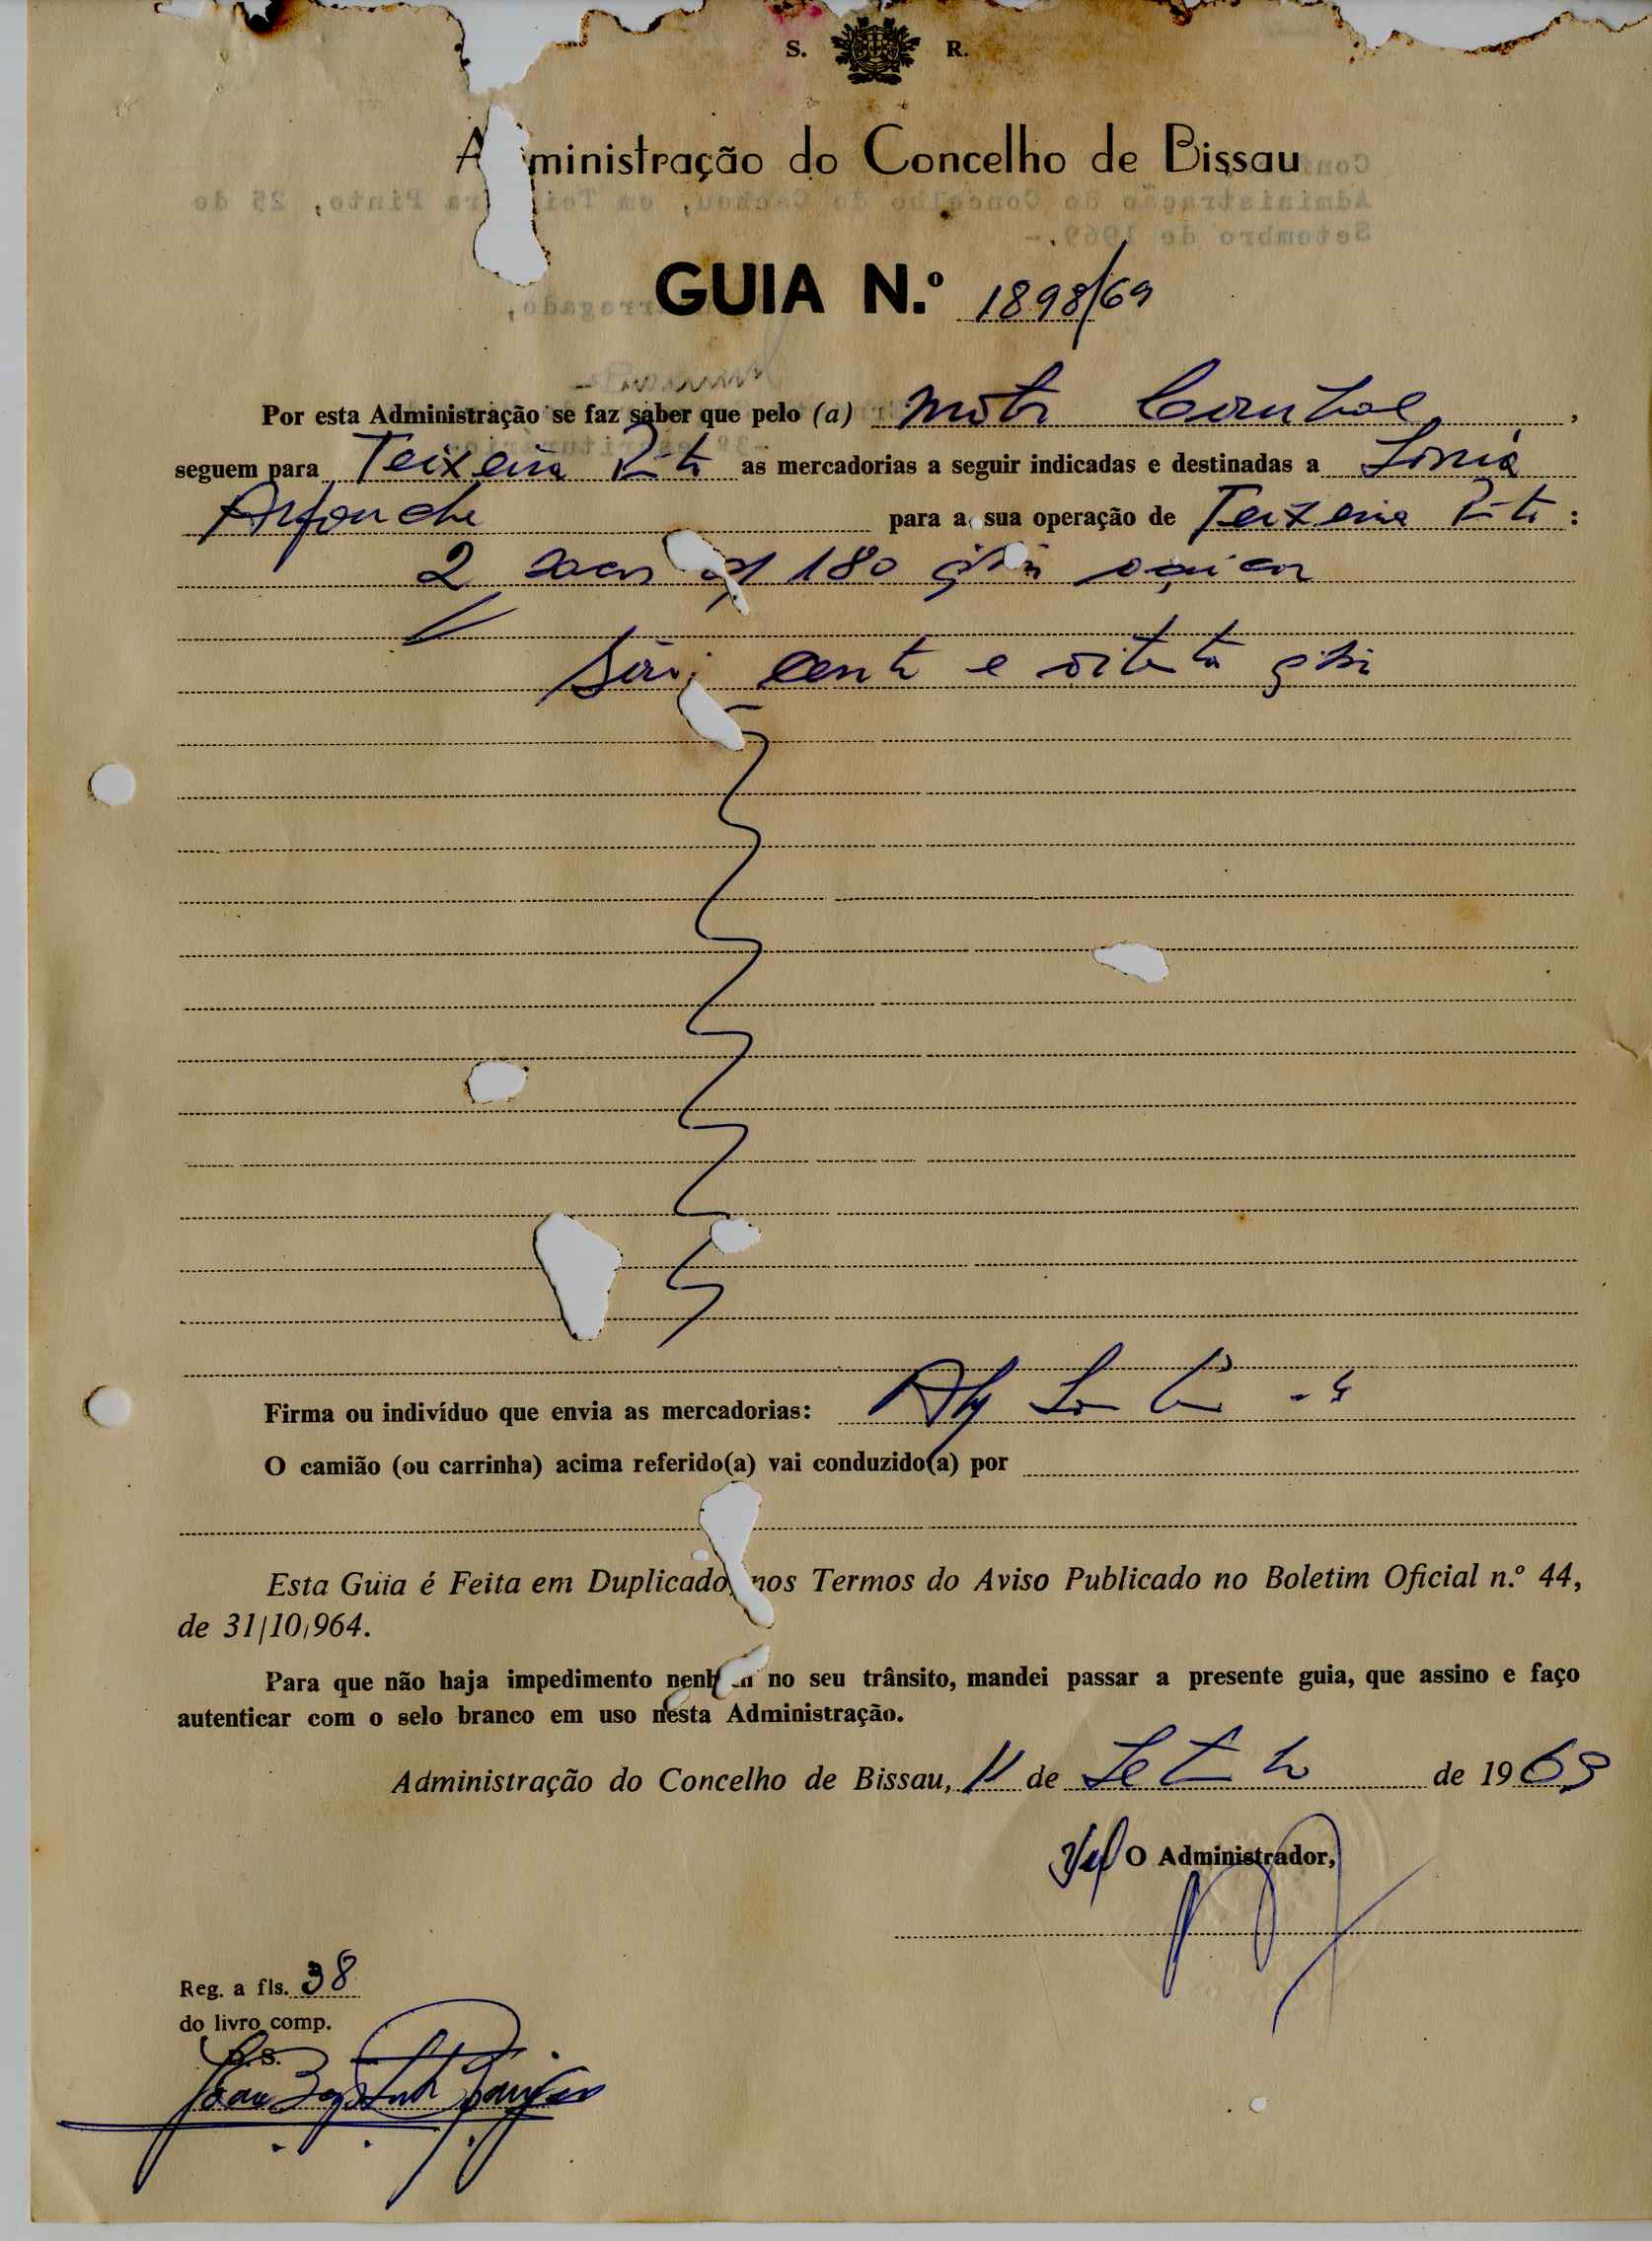 S. R.
Administração do Concelho de Bissau
GUIA N.º 1898/69
Por esta Administração se faz saber que pelo (a) Moto ,
seguem para Teixeira Pinto as mercadorias a seguir indicadas e destinadas a Sónia
para a sua operação de Teixeira Pinto :
2 sacos c/ 180 açúcar
São: cento e oitenta
Firma ou indivíduo que envia as mercadorias: Aly
O camião (ou carrinha) acima referido(a) vai conduzido(a) por
Esta Guia é Feita em Duplicado, nos Termos do Aviso Publicado no Boletim Oficial n.º 44,
de 31/10/964.
Para que não haja impedimento nenhum no seu trânsito, mandei passar a presente guia, que assino e faço
autenticar com o selo branco em uso nesta Administração.
Administração do Concelho de Bissau, 11 de Setembro de 1969
O Administrador,
Reg. a fls. 38
do livro comp.
D. S.